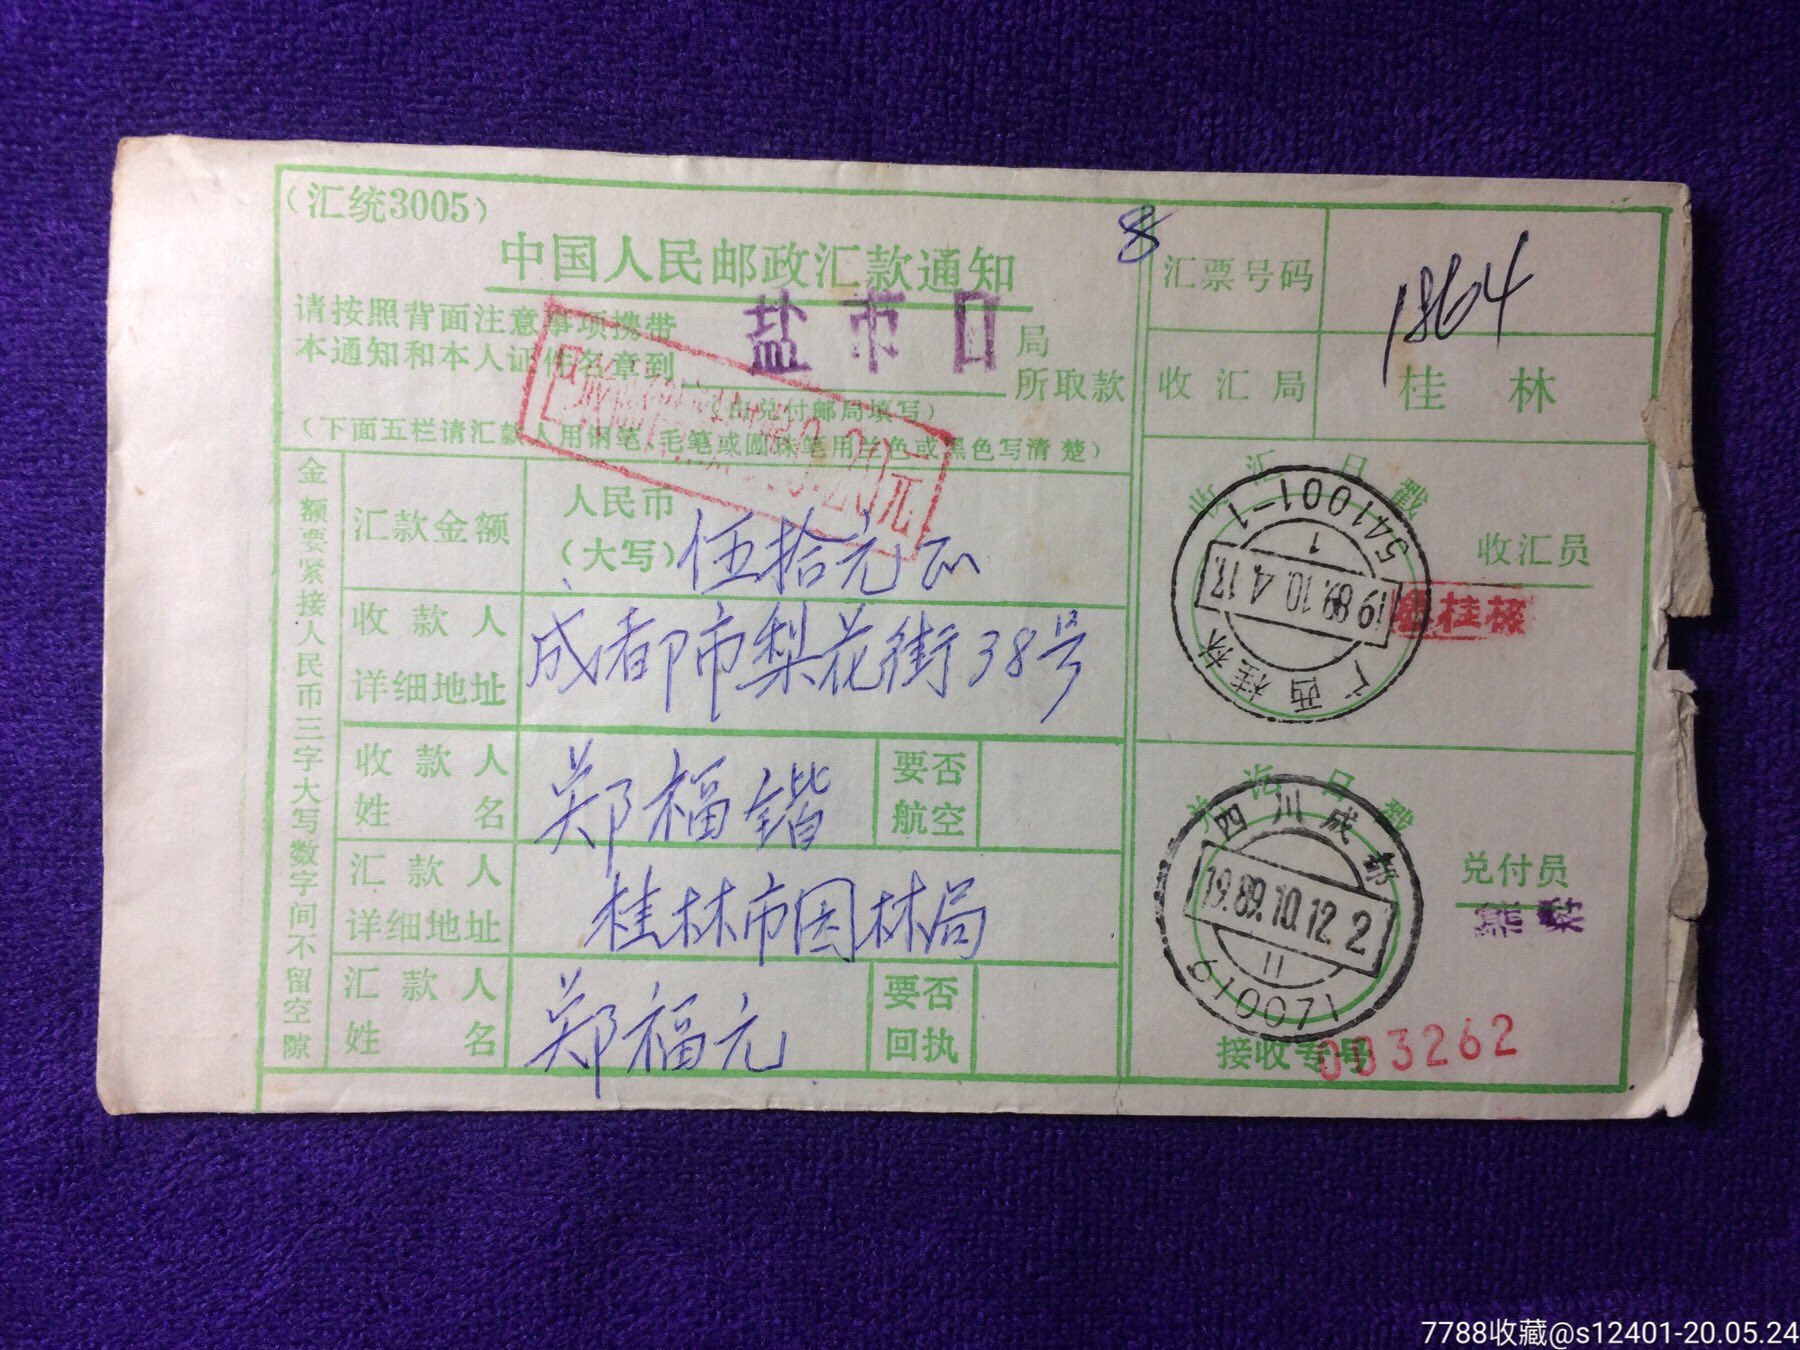 (汇统3005)
中国人民邮政汇款通知
请按照背面注意事项携带
本通知和本人证件名章到
盐市口
局
所取款
(由兑付邮局填写)
(下面五栏请汇款人用钢笔、毛笔或圆珠笔用兰色或黑色写清楚)
元
金额要紧接人民币三字大写数字间不留空隙
汇款金额
人民币
(大写)
伍拾元正
收款人
详细地址
成都市梨花街38号
收款人
姓名
郑福锴
要否
航空
汇款人
详细地址
桂林市园林局
汇款人
姓名
郑福元
要否
回执
8
汇票号码
1864
收汇局
桂林
收汇日戳
541001-1
1
1989.10.4.17
广西桂林
收汇员
兑汇日戳
四川成都
19.89.10.12.2
11
610071
兑付员
接收专号
003262
7788收藏@s12401-20.05.24